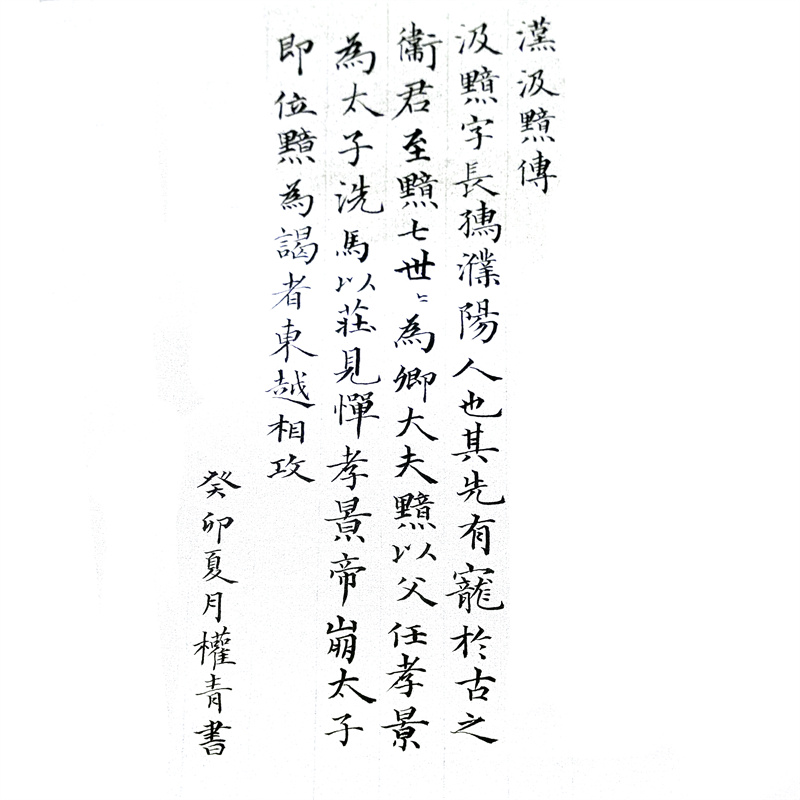 漢汲黯傳
汲黯字長孺濮陽人也其先有寵於古之
衞君至黯七世〻為卿大夫黯以父任孝景
為太子洗馬以莊見憚孝景帝崩太子
即位黯為謁者東越相攻
癸卯夏月權青書